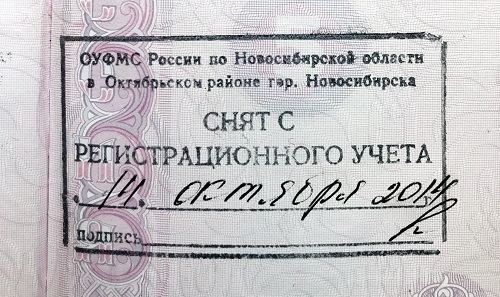 ОУФМС России по Новосибирской области
в Октябрьском районе гор. Новосибирска
СНЯТ С
РЕГИСТРАЦИОННОГО УЧЕТА
11. октября 2014
подпись